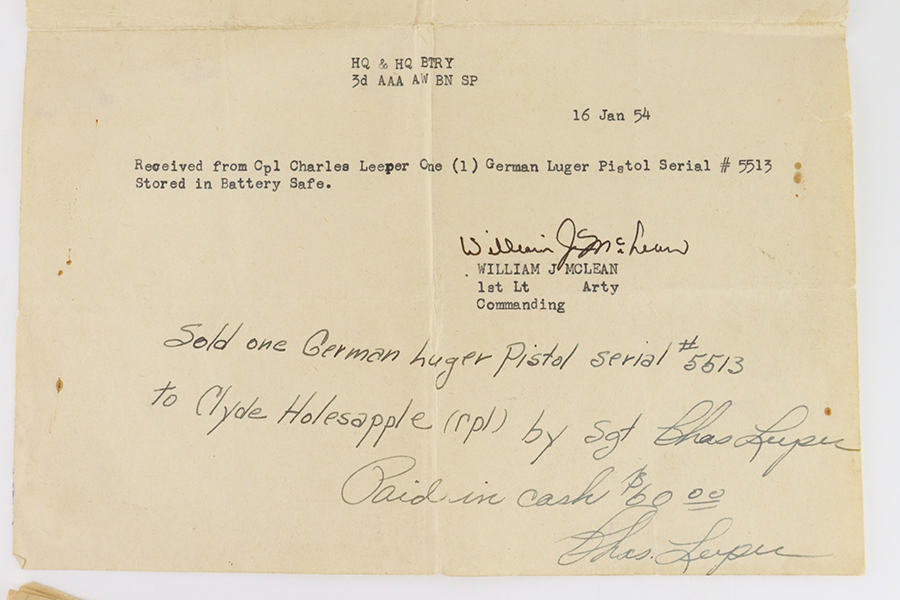 HQ & HQ BTRY
3d AAA AW BN SP
16 Jan 54
Received from Cpl Charles Leeper One (1) German Luger Pistol Serial # 5513
Stored in Battery Safe.
William J. McLean
WILLIAM J MCLEAN
1st Lt Arty
Commanding
Sold one German Luger Pistol serial #5513
to Clyde Holesapple (Cpl) by Sgt Chas Leeper
Paid in cash $60 00
Chas. Leeper